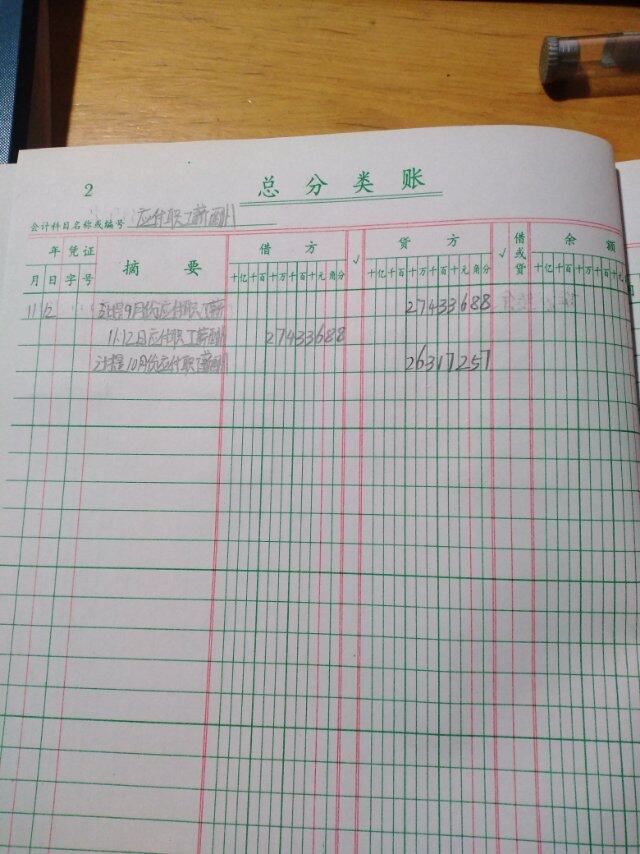 2
总分类账
会计科目名称或编号 应付职工薪酬
年 凭证 摘要 借方 √ 贷方 √ 借或贷 余额
月 日 字 号 十亿千百十万千百十元角分 十亿千百十万千百十元角分 十亿千百十万千百十元
11 12 计提9月份应付职工薪 27433688
11.12日应付职工薪酬 27433688
计提10月份应付职工薪酬 26317257